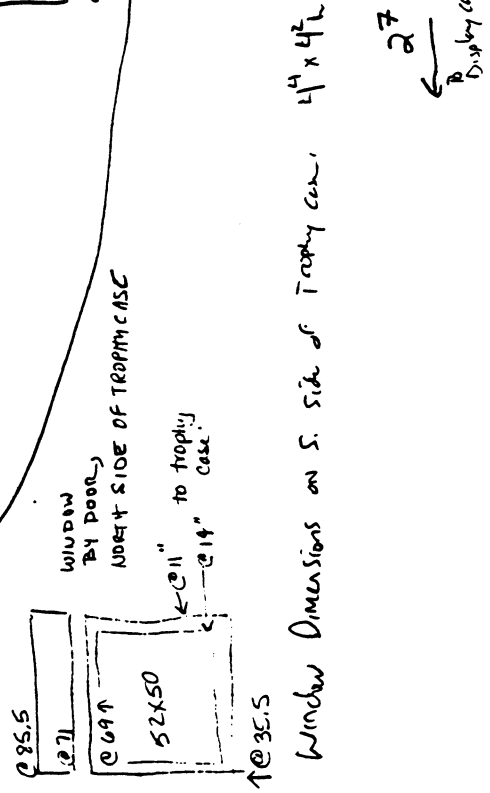 @85.5
@71
@69↑
52x50
↑@35.5
WINDOW
BY DOOR,
NORTH SIDE OF TROPHY CASE
←@11" to trophy
case.
←@14"
Window Dimensions on S. Side of Trophy case. 4⁴ x 4²
2⁷
←
to
Display